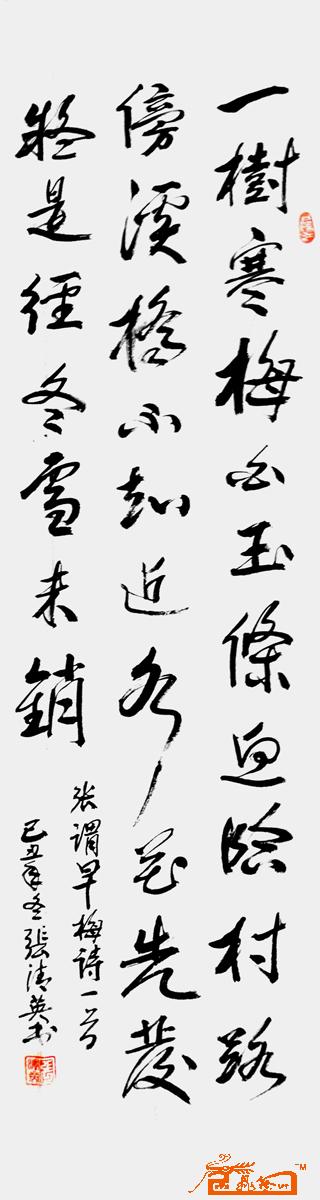 一樹寒梅白玉條迥臨村路
傍溪橋不知近水花先發
疑是經冬雪未銷
张謂早梅詩一首
己丑年冬張清英书